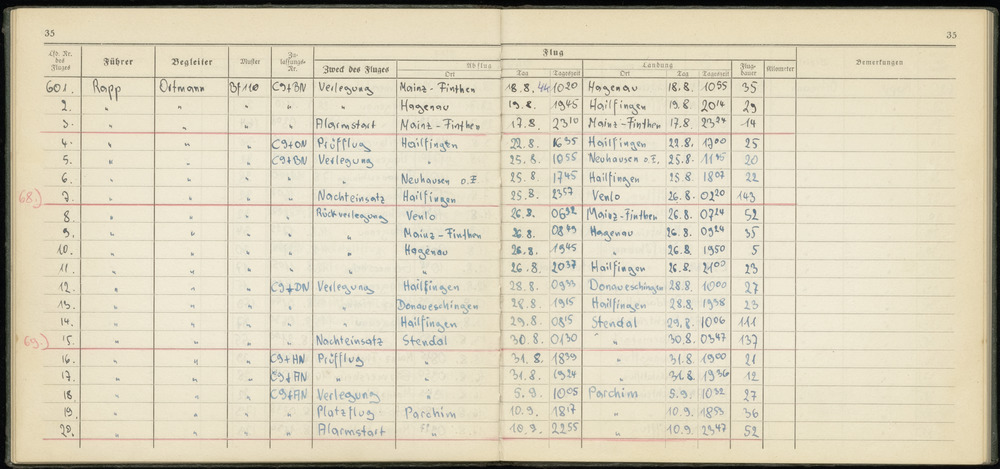 35 35
Lfd. Nr. des Fluges Führer Begleiter Muster Zulassungs-Nr. Zweck des Fluges Flug Bemerkungen
Abflug Landung Flugdauer Kilometer
Ort Tag Tageszeit Ort Tag Tageszeit
601. Rapp Ortmann Bf 110 C9+BN Verlegung Mainz-Finthen 18.8.44 1020 Hagenau 18.8. 1055 35
2. " " " " " Hagenau 19.8. 1945 Hailfingen 19.8. 2014 29
3. " " " " Alarmstart Mainz-Finthen 17.8. 2310 Mainz-Finthen 17.8. 2324 14
4. " " " C9+DN Prüfflug Hailfingen 22.8. 1635 Hailfingen 22.8. 1700 25
5. " " " C9+BN Verlegung " 25.8. 1055 Neuhausen o.E. 25.8. 1115 20
6. " " " " " Neuhausen o.E. 25.8 1745 Hailfingen 25.8. 1807 22
68.) 7. " " " " Nachteinsatz Hailfingen 25.8. 2357 Venlo 26.8. 0220 143
8. " " " " Rückverlegung Venlo 26.8. 0632 Mainz-Finthen 26.8. 0724 52
9. " " " " " Mainz-Finthen 26.8. 0849 Hagenau 26.8. 0924 35
10. " " " " " Hagenau 26.8. 1945 " 26.8. 1950 5
11. " " " " " " 26.8. 2037 Hailfingen 26.8. 2100 23
12. " " " C9+DN Verlegung Hailfingen 28.8. 0933 Donaueschingen 28.8. 1000 27
13. " " " " " Donaueschingen 28.8. 1915 Hailfingen 28.8. 1938 23
14. " " " " " Hailfingen 29.8. 0815 Stendal 29.8. 1006 111
69.) 15. " " " " Nachteinsatz Stendal 30.8. 0130 " 30.8. 0347 137
16. " " " C9+HN Prüfflug " 31.8. 1839 " 31.8. 1900 21
17. " " " C9+AN " " 31.8. 1924 " 31.8. 1936 12
18. " " " C9+AN Verlegung " 5.9. 1005 Parchim 5.9. 1032 27
19. " " " " Platzflug Parchim 10.9. 1817 " 10.9. 1853 36
20. " " " " Alarmstart " 10.9. 2255 " 10.9. 2347 52